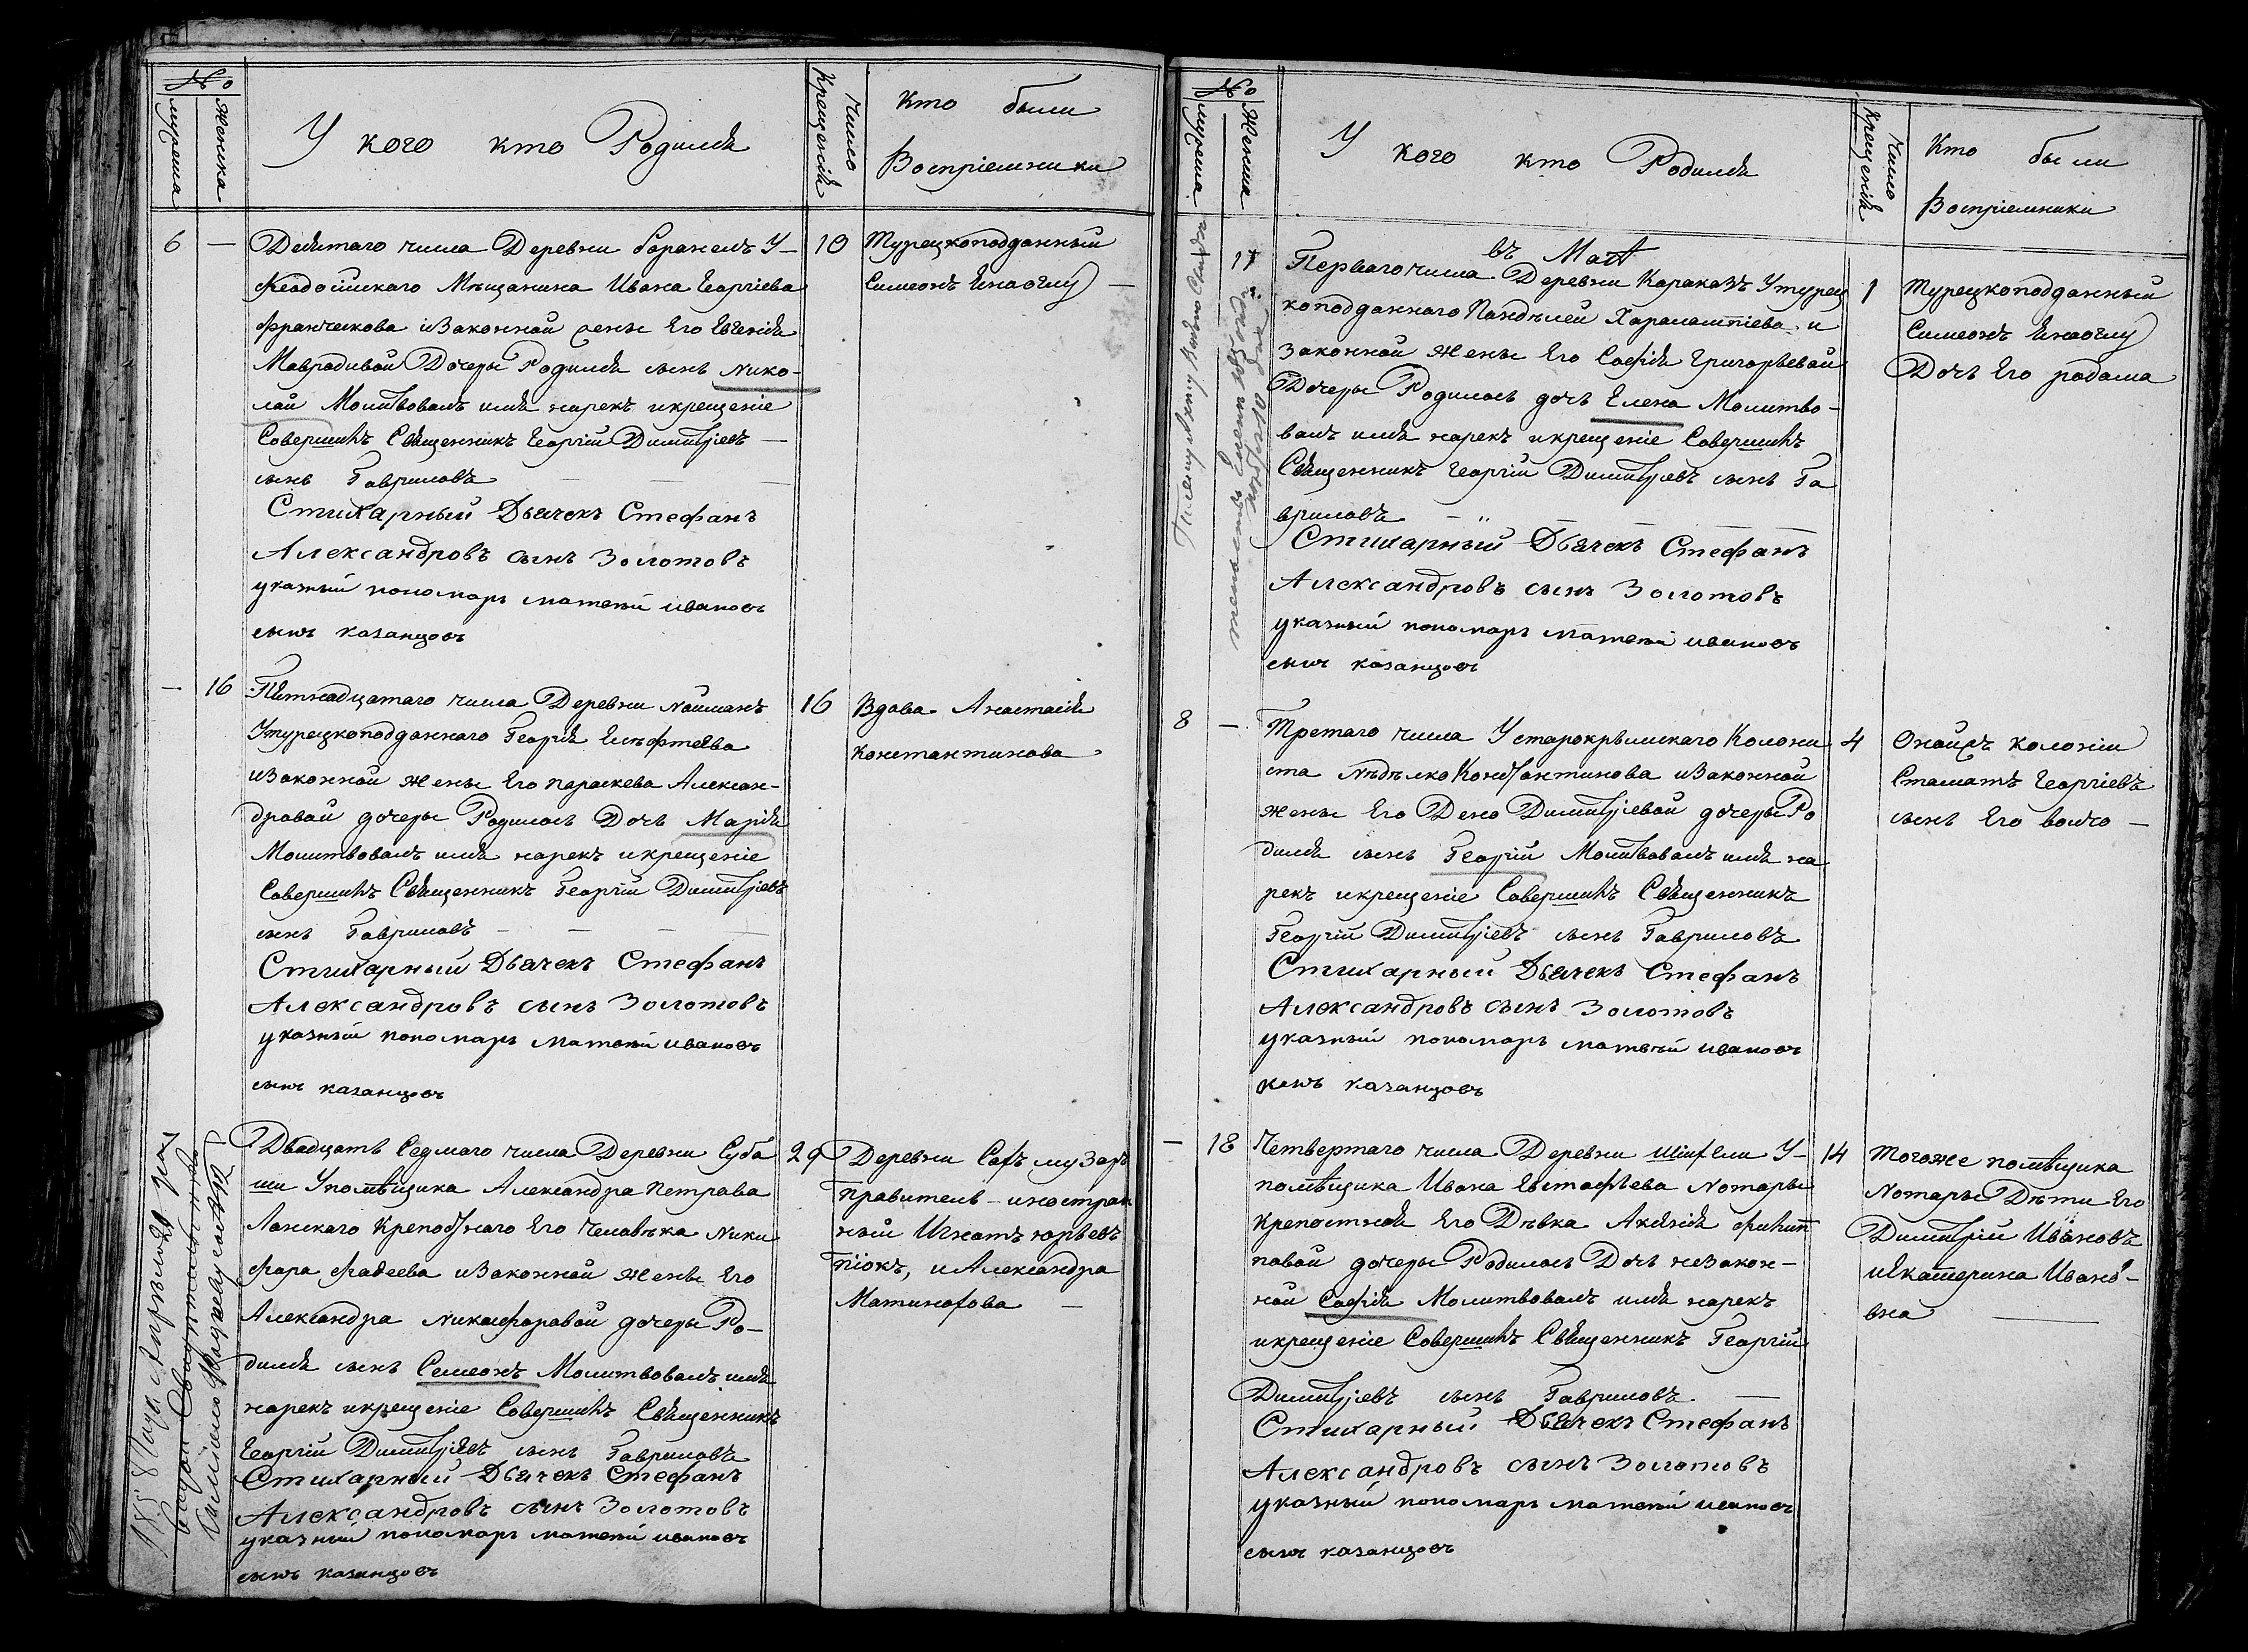 №
мужеска
женска
У кого кто Родился
Число
Крещенія
Кто были
Воспріемники
6 —
Девятаго числа Деревни Баракелъ У
Феодосійскаго Мѣщанина Ивана Георгіева
Франчешкова изаконной жены Его Евгенія
Мавродивой Дочеры Родился сынъ Нико-
лай Молитвовалъ имя нарекъ икрещеніе
Совершилъ Священникъ Георгій Димитріевъ —
сынъ Гавриловъ
Стихарный Дьячекъ Стефанъ
Александровъ сынъ Золотовъ
указный пономарь матвей ивановъ
сынъ казанцовъ
10
Турецкоподданный
Симеонъ Енаоглу —
— 16
Пятнадцатаго числа Деревни Найманъ
Утурецкоподданнаго Георгія Елѣфтеѣва
изаконной жены Его параскева Алексан-
дравой дочеры Родилась Дочь Марія
Молитвовалъ имя нарекъ икрещеніе
Совершилъ Священникъ Георгій Димитріевъ
сынъ Гавриловъ
Стихарный Дьячекъ Стефанъ
Александровъ сынъ Золотовъ
указный пономарь матвей ивановъ
сынъ казанцовъ
16
Вдова Анастасія
Константинова
Двадцать Седмаго числа Деревни Суба
ши Упомѣщика Александра Петрава
Ланскаго Крепостнаго Его Человѣка Ники
фара Фадеева изаконной жены Его
Александра Никифоравой дочеры Ро-
дился сынъ Семеонъ Молитвовалъ имя
нарекъ икрещеніе Совершилъ Священникъ
Георгій Димитріевъ сынъ Гавриловъ
Стихарный Дьячекъ Стефанъ
Александровъ сынъ Золотовъ
указный пономарь матвей ивановъ
сынъ казанцовъ
29
Деревни
правитель — иностран
ный Игнатъ юрьевъ
піокъ, и Александра
—
№
мужеска
Женска
У кого кто Родился
Число
Крещенія
Кто были
Воспріемники
въ Маѣ
17
Перваго числа Деревни Каракозъ Утурец
коподданнаго Пандѣлей Харалампіева и
Законной жены Его Софія Григорьевой
Дочеры Родилась дочь Елена Молитво-
валъ имя нарекъ икрещеніе Совершилъ
Священникъ Георгій Димитріевъ сынъ Га
вриловъ
Стихарный Дьячекъ Стефанъ
Александровъ сынъ Золотовъ
указный пономарь матвей ивановъ
сынъ казанцовъ
1
Турецкоподданный
Симеонъ Енаоглу
Дочь Его родама
8 —
Третаго числа У старокрымскаго Колони
ста Нѣдѣлко Константинова изаконной
жены Его Дено Димитріевой дочеры Ро
дился сынъ Георгій Молитвовалъ имя на
рекъ икрещеніе Совершилъ Священникъ
Георгій Димитріевъ сынъ Гавриловъ
Стихарный Дьячекъ Стефанъ
Александровъ сынъ Золотовъ
указный пономарь матвей ивановъ
сынъ казанцовъ
4
Стаматъ Георгіевъ
сынъ Его —
— 18
Четвертаго числа Деревни У-
помѣщика Ивана Евстафьева Нотары
Крепостная Его Дѣвка Аксенія Филип
повой дочеры Родилась Дочь незакон-
ной Софія Молитвовалъ имя нарекъ
икрещеніе Совершилъ Священникъ Георгій
Димитріевъ сынъ Гавриловъ —
Стихарный Дьячекъ Стефанъ
Александровъ сынъ Золотовъ
указный пономарь матвей ивановъ
сынъ казанцовъ
14
Тогоже помѣщика
Нотары Дѣти Его
Димитрій Ивановъ
иЕкатерина Ивано-
вна